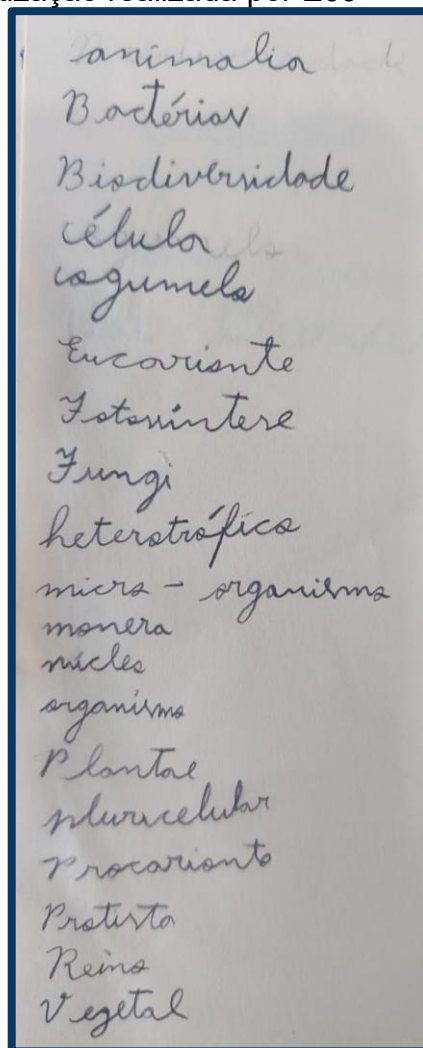 animalia
Bactérias
Biodiversidade
célula
cogumelo
Eucarionte
Fotossíntese
Fungi
heterotrófico
micro - organismo
monera
núcleo
organismo
Plantae
pluricelular
Procarionto
Protista
Reino
Vegetal